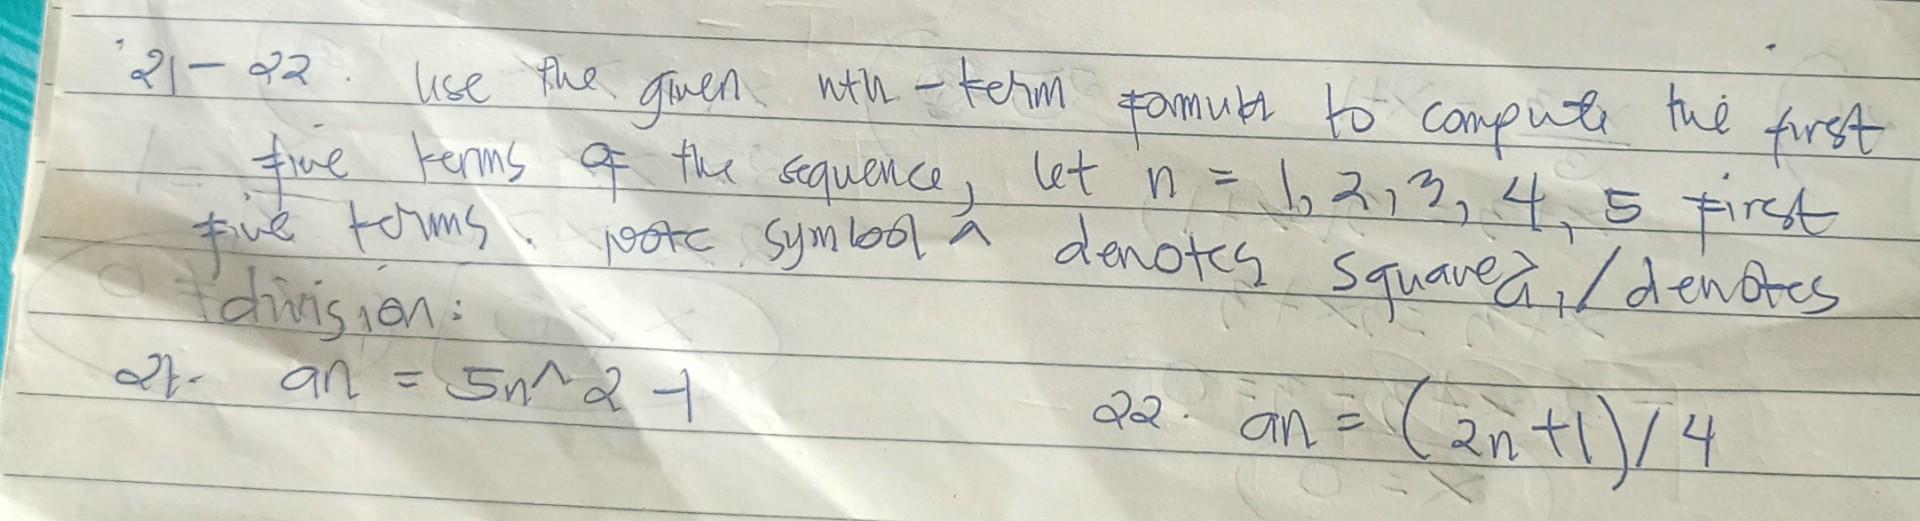 21-22. Use the given nth-term formula to compute the first
five terms of the sequence, let n = 1, 2, 3, 4, 5 first
five terms. note symbol ^ denotes squared, / denotes
division:
21. an = 5n^2-1
22. an = (2n+1)/4